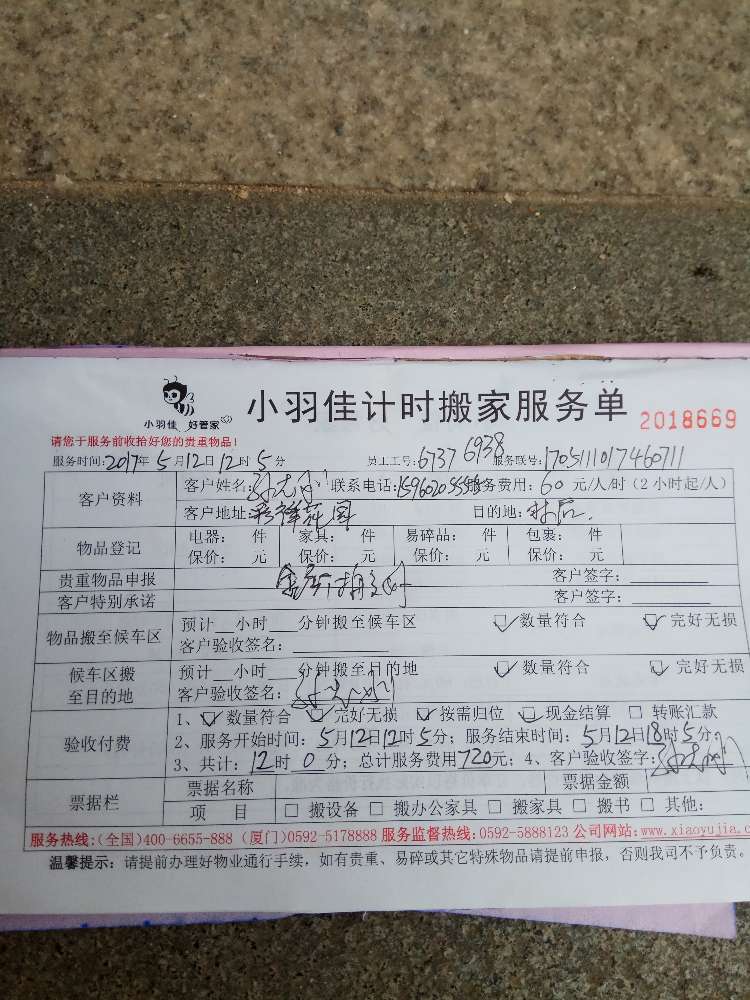 小羽佳 好管家
小羽佳计时搬家服务单 2018669
请您于服务前收拾好您的贵重物品!
服务时间:2017年5月12日12时5分 员工工号:6737 6938 服务联号:1705111017460711
客户资料 客户姓名: 联系电话: 服务费用:60元/人/时(2小时起/人)
客户地址: 目的地:
物品登记 电器: 件 家具: 件 易碎品: 件 包裹: 件
保价: 元 保价: 元 保价: 元 保价: 元
贵重物品申报 客户签字:
客户特别承诺 客户签字:
物品搬至候车区 预计__小时__分钟搬至候车区 ☑数量符合 ☑完好无损
客户验收签名:
候车区搬至目的地 预计__小时__分钟搬至目的地 ☑数量符合 ☑完好无损
客户验收签名:
验收付费 1、☑数量符合 ☑完好无损 ☑按需归位 ☑现金结算 □转账汇款
2、服务开始时间:5月12日12时5分;服务结束时间:5月12日18时5分;
3、共计:12时0分;总计服务费用720元;4、客户验收签字:
票据栏 票据名称 票据金额
项 目 □搬设备 □搬办公家具 □搬家具 □搬书 □其他:
服务热线:(全国)400-6655-888 (厦门)0592-5178888 服务监督热线:0592-5888123 公司网站:www.xiaoyujia.
温馨提示:请提前办理好物业通行手续,如有贵重、易碎或其它特殊物品请提前申报,否则我司不予负责。